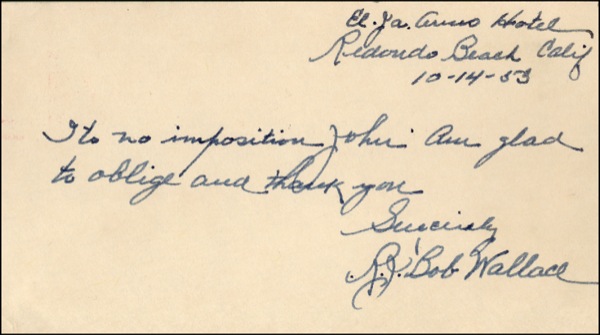 El. Ja. Arms Hotel
Redondo Beach Calif
10-14-53
Its no imposition John. Am glad
to oblige and thank you
Sincerely
R.J. Bob Wallace